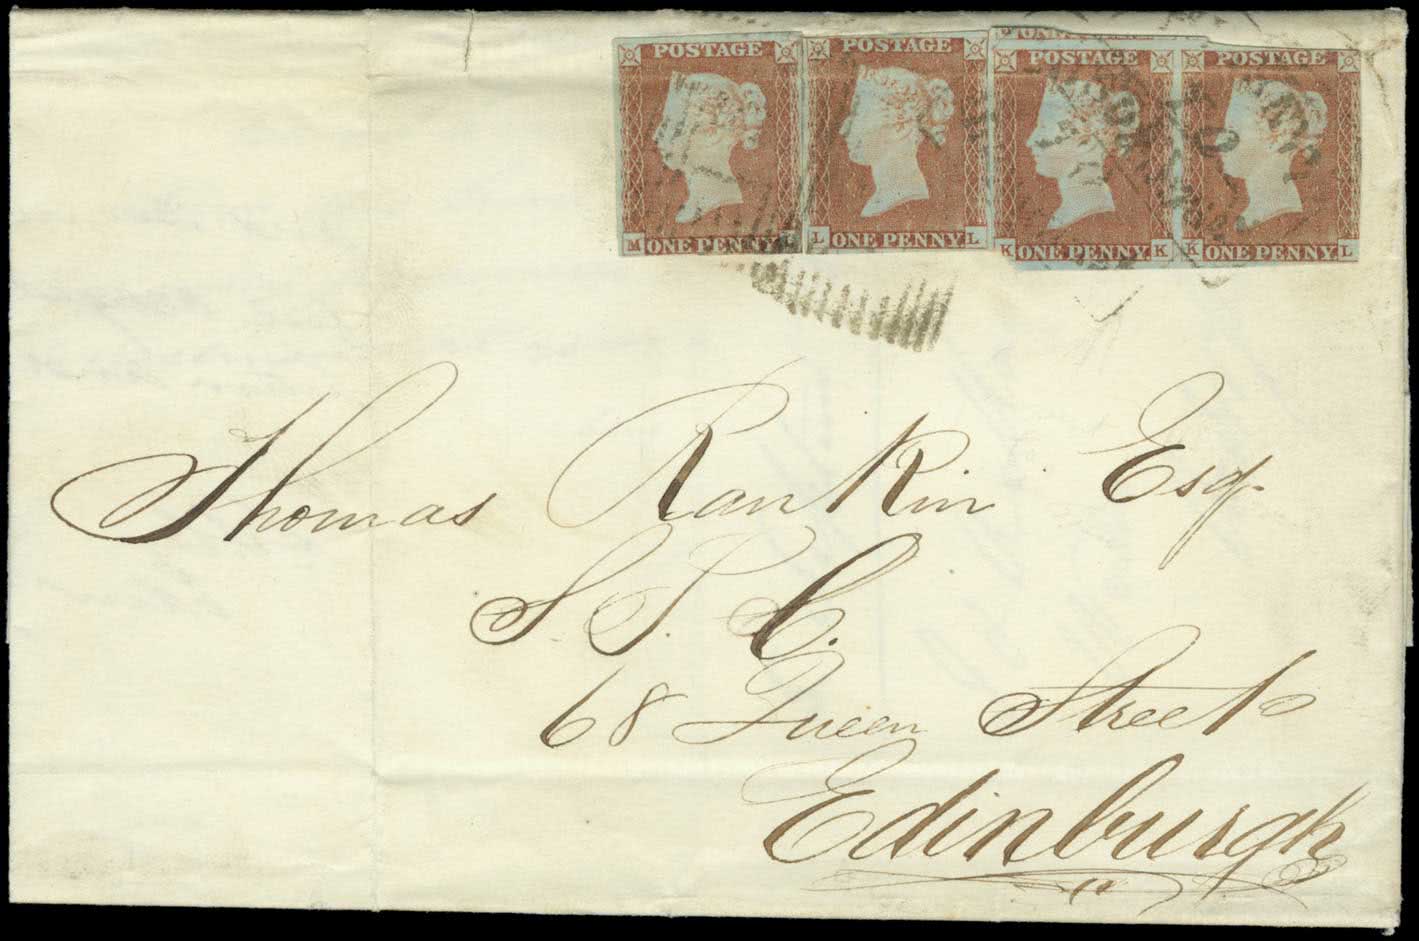 POSTAGE POSTAGE POSTAGE POSTAGE
M ONE PENNY L L ONE PENNY L K ONE PENNY K K ONE PENNY L
Thomas Rankin Esqr.
S. S. C.
68 Queen Street
Edinburgh